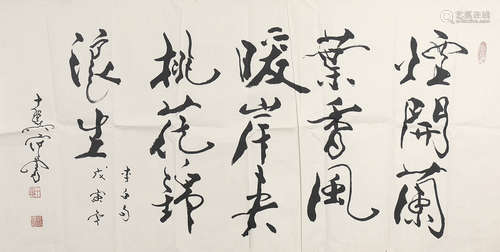 煙開蘭
葉香風
暖岸夾
桃花錦
浪生
李白句
戊寅年